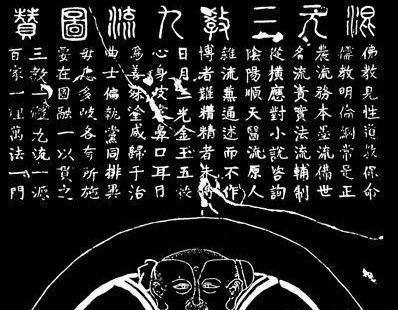 混元三教九流圖贊
佛教見性道教保命
儒教明倫綱常是正
農流務本墨流備世
名流責實法流輔制
從橫應對小說咨詢
陰陽順天醫流原人
雜流兼通述而不作
博者難精精者未博
日月三光金玉五穀
心身皮膚鼻口耳目
為善殊塗咸歸于治
曲士偏執黨同排異
毋患多歧各有所施
要在圓融一以貫之
三教一體九流一源
百家一理萬法一門